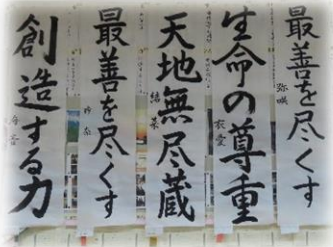 最善を尽くす
弥咲
生命の尊重
衣愛
天地無尽蔵
結菜
最善を尽くす
創造する力